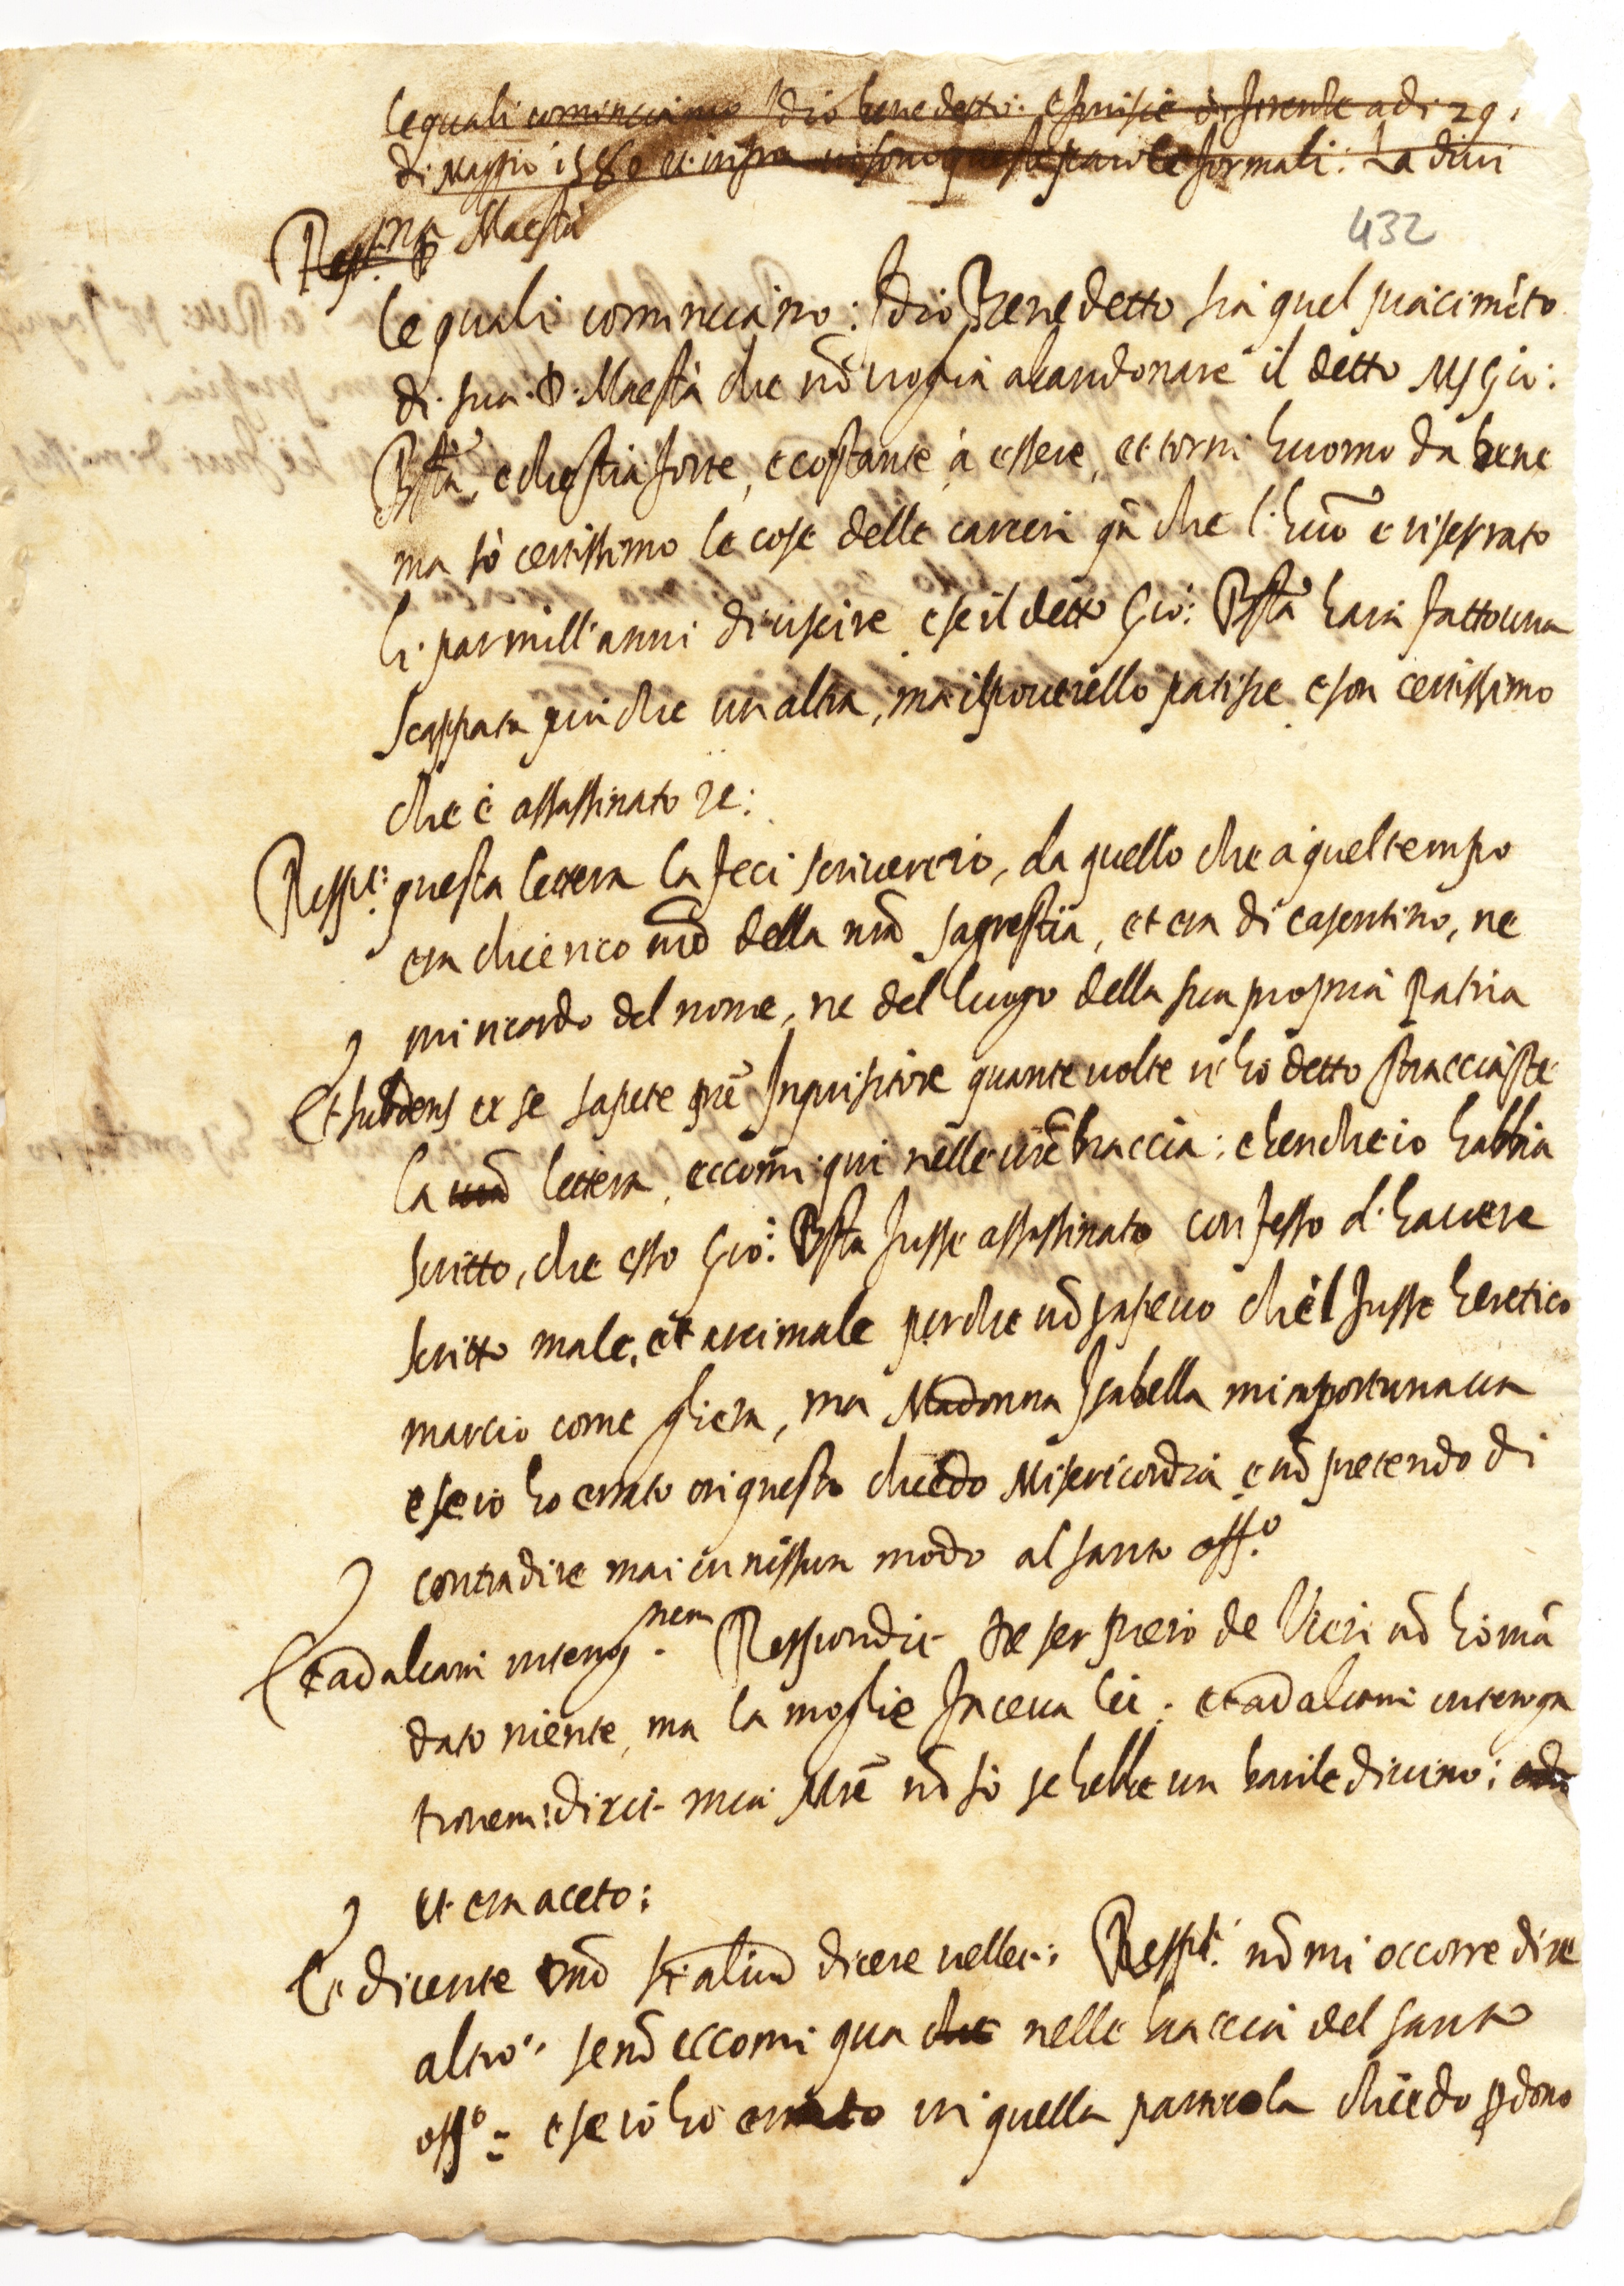 le quali cominciano Idio benedetto: e finisce di firenze adi 29.
di Maggio 1580 et infra vi sono queste parole formali: La divi
na Maestà
Resp.
432
le quali cominciano: Idio Benedetto sia quel piacimẽto
di sua D. Maestà che nõ voglia abandonare il detto Ms Gio:
Bstã, e che stia forte, e costante à essere, et torni huomo da bene
ma sò certissimo le cose delle carceri qñ che l'huõ è riserrato
li par mill'anni di uscire e se il detto Gio: Bstã hara fatto una
scappata piu che un altra, ma il poverello patisce e son certissimo
che è assassinato ze:
Respt: questa lettera la feci scrivere io, da quello che à quel tempo
era chierico nrõ della nrã sagrestia, et era di casentino, ne
mi ricordo del nome, ne del luogo della sua propria Patria
Et subdens et se sapete prẽ Inquisitore quante volte vi hò detto stracciaste
la lettera, eccomi qui nelle vrẽ braccia: e benche io habbia
scritto, che esso Gio: Bstã fusse assassinato confesso d'havere
scritto male, et arcimale perche nõ sapevo che'l fusse heretico
marcio come gliera, ma Madonna Isabella mi importunava
e se io ho errato in questo chiedo Misericordia e nõ pretendo di
contradire mai in nissun modo al santo off.o
Et ad aliam interrog.nem Respondit Se ser piero de Ricci nõ hò mã
dato niente, ma la moglie faceva lei: et ad aliam interroga
tionem: dixit mia Mrẽ nõ sò se hebbe un barile di vino:
et era aceto:
Et dicente dnõ si aliud dicere vellet: Respt. nõ mi occorre dire
altro: se nõ eccomi qua che nelle braccia del santo
off.o: e se io ho errato in quella parola chiedo perdono